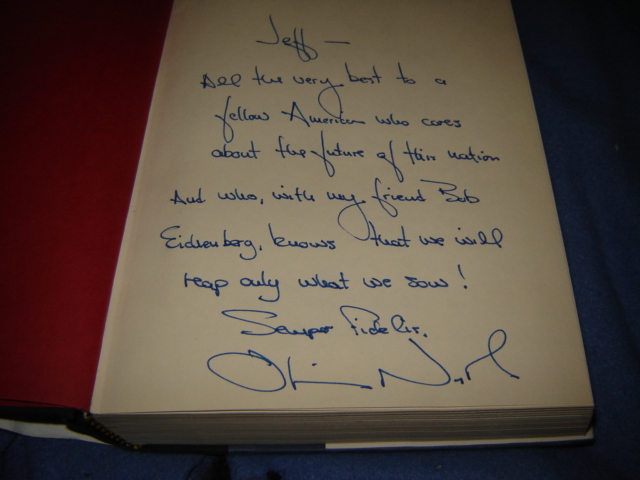 Jeff —
All the very best to a
fellow American who cares
about the future of this nation
And who, with my friend Bob
Eichenberg, knows that we will
reap only what we sow!
Semper Fidelis.
Oliver North